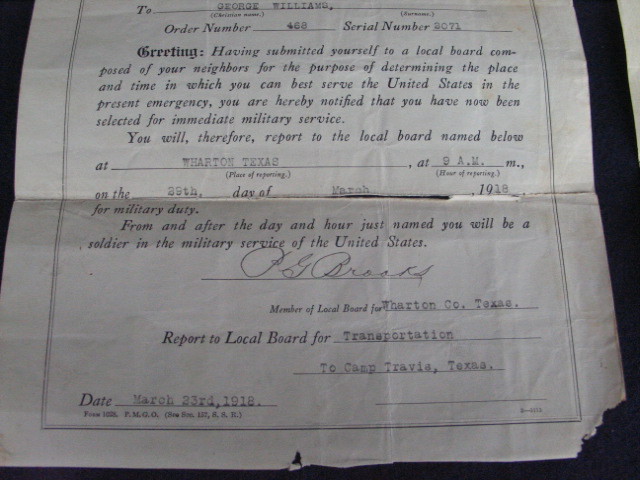 To GEORGE WILLIAMS,
(Christian name.) (Surname.)
Order Number 468 Serial Number 2071
Greeting: Having submitted yourself to a local board com-
posed of your neighbors for the purpose of determining the place
and time in which you can best serve the United States in the
present emergency, you are hereby notified that you have now been
selected for immediate military service.
You will, therefore, report to the local board named below
at WHARTON TEXAS , at 9 A.M. m.,
(Place of reporting.) (Hour of reporting.)
on the 29th. day of March , 1918.
for military duty.
From and after the day and hour just named you will be a
soldier in the military service of the United States.
P G Brooks
Member of Local Board for Wharton Co. Texas.
Report to Local Board for Transportation
To Camp Travis, Texas.
Date March 23rd, 1918.
Form 1028. P. M. G. O. (See Sec. 157, S. S. R.)